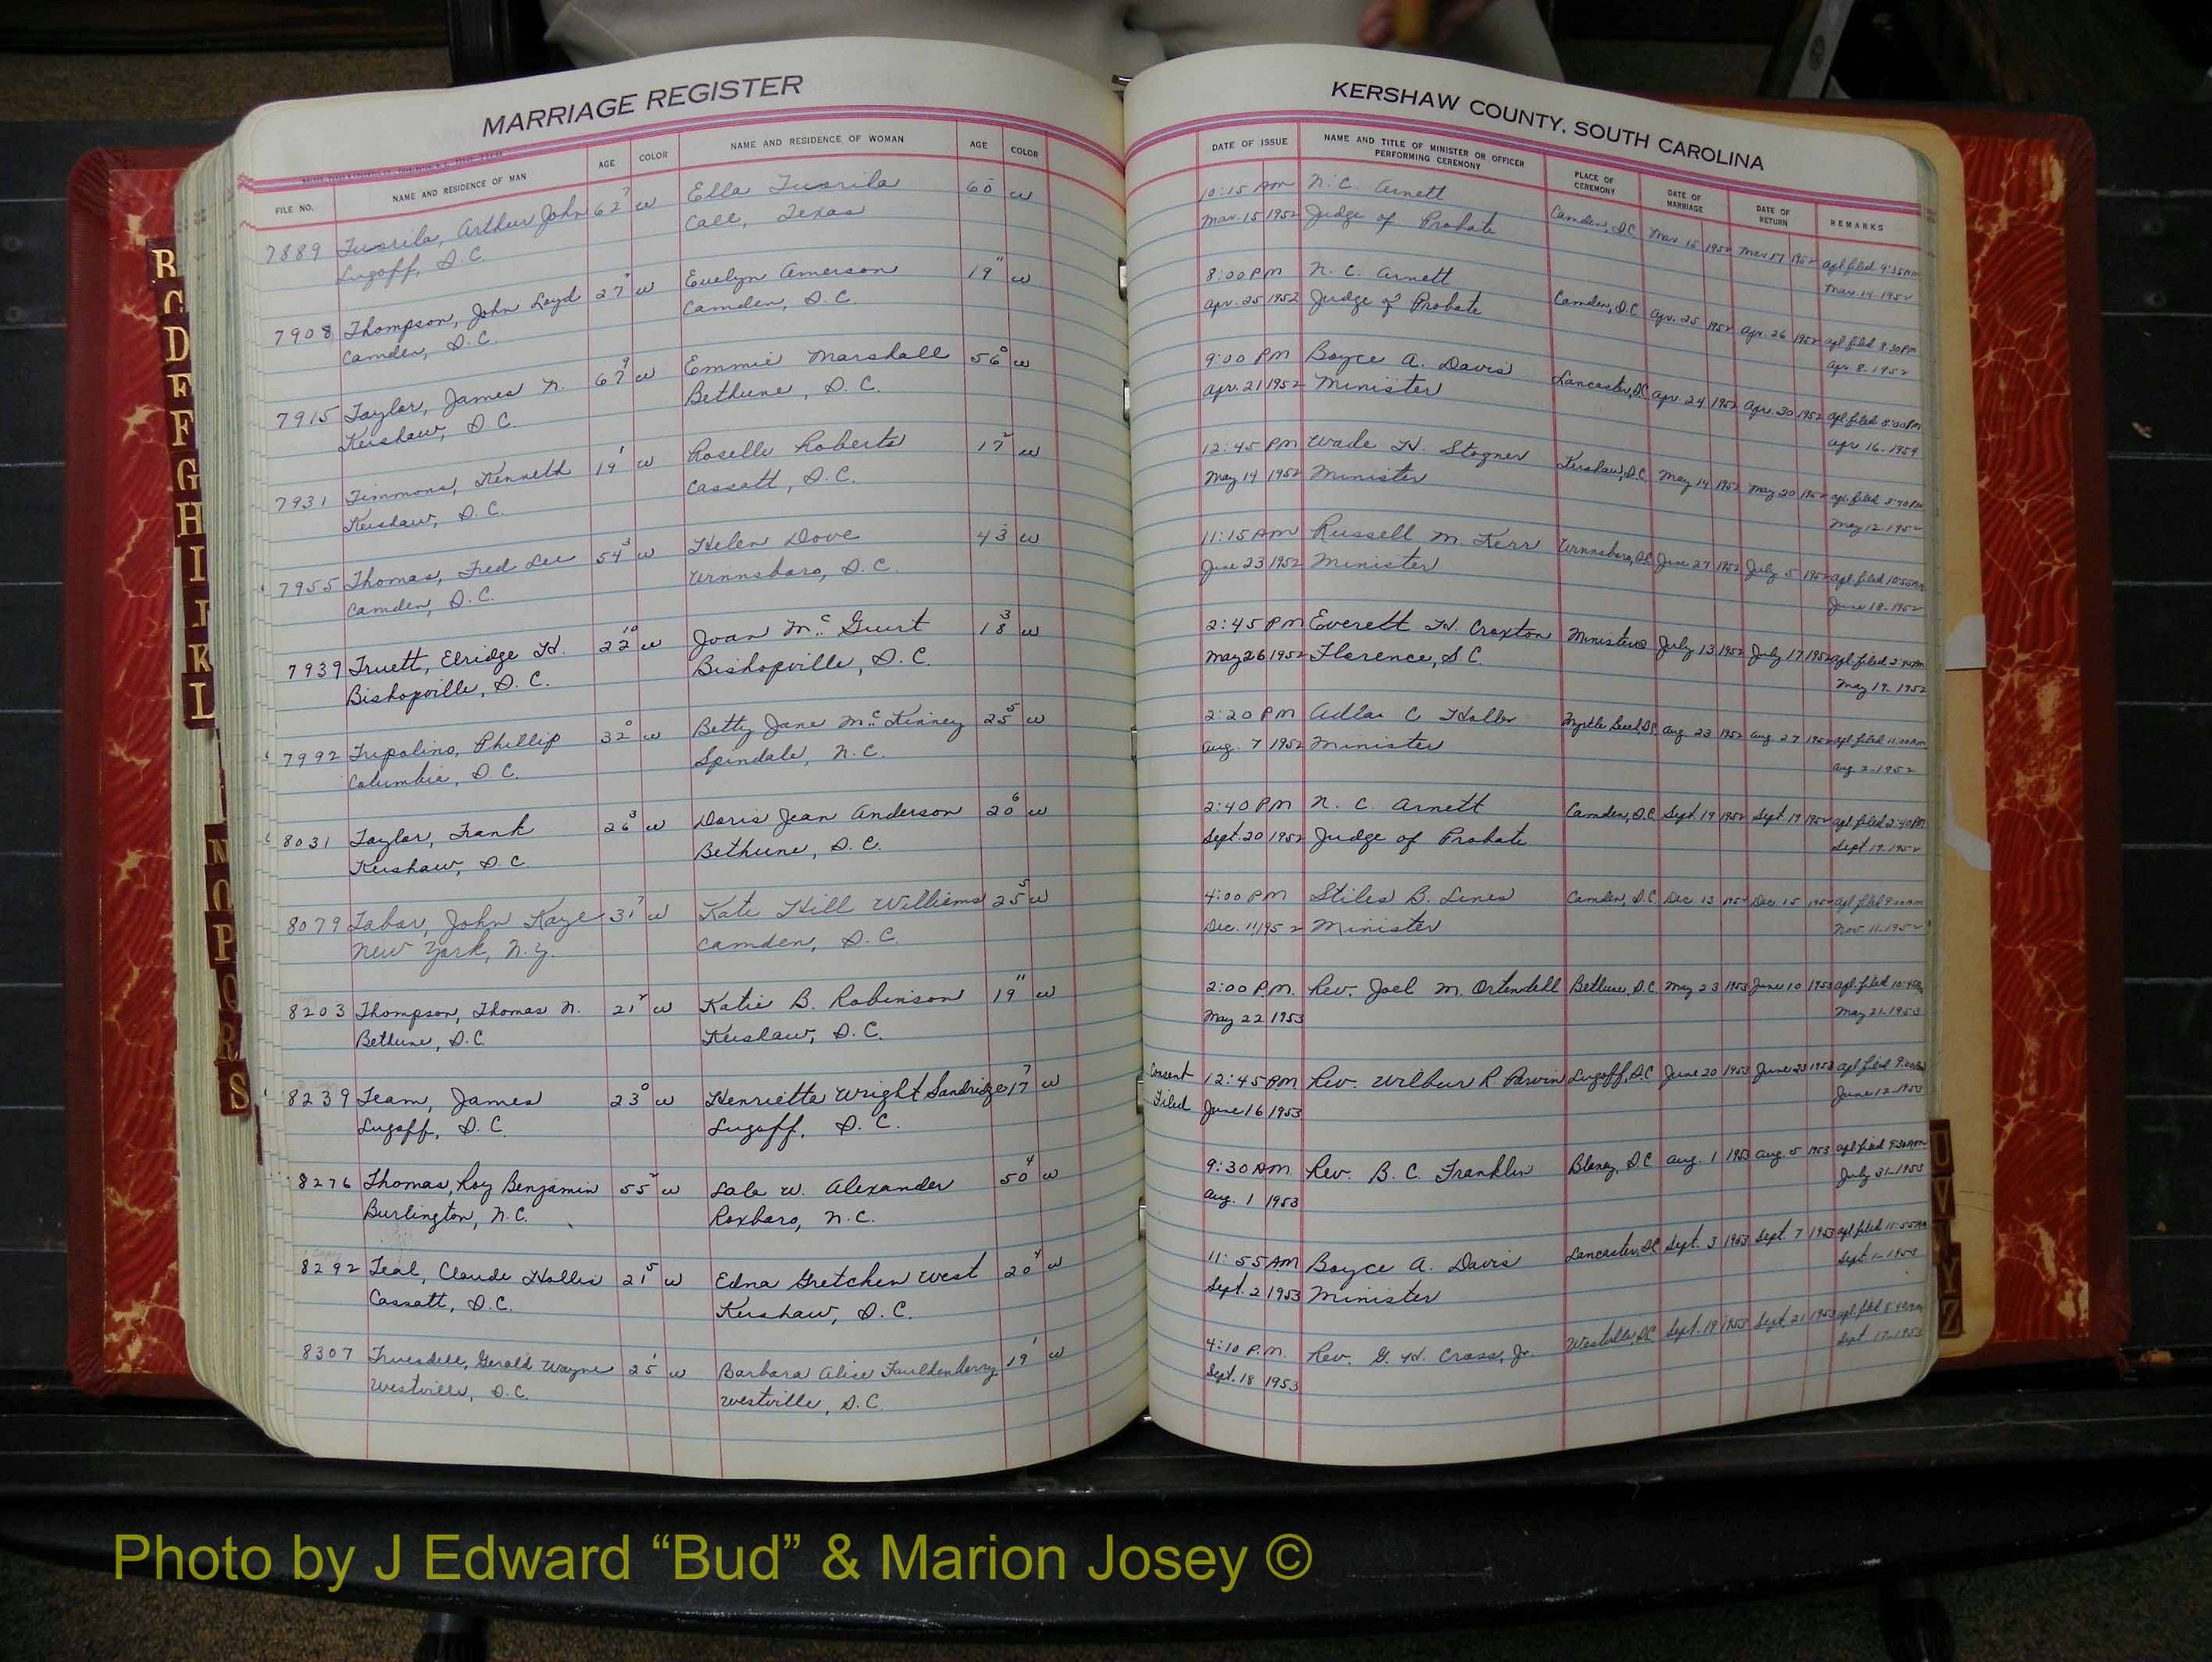 MARRIAGE REGISTER
FILE NO. NAME AND RESIDENCE OF MAN AGE COLOR NAME AND RESIDENCE OF WOMAN AGE COLOR
7889 Tuorila, Arthur John 62 7 w Ella Tuorila 60 w
Lugoff, S.C. Call, Texas
7908 Thompson, John Loyd 27 7 w Evelyn Amerson 19 11 w
Camden, S.C. Camden, S.C.
7915 Taylor, James N. 67 9 w Emmie Marshall 56 0 w
Kershaw, S.C. Bethune, S.C.
7931 Timmons, Kenneth 19 1 w Roselle Roberts 17 2 w
Kershaw, S.C. Cassatt, S.C.
7955 Thomas, Fred Lee 54 3 w Helen Dove 43 w
Camden, S.C. Winnsboro, S.C.
7939 Truett, Elridge H. 22 10 w Joan Mc Guirt 18 3 w
Bishopville, S.C. Bishopville, S.C.
7992 Tripolino, Phillip 32 0 w Betty Jane Mc Kinney 25 5 w
Columbia, S.C. Spindale, N.C.
8031 Taylor, Frank 26 3 w Doris Jean Anderson 20 6 w
Kershaw, S.C. Bethune, S.C.
8079 Tabor, John Kaye 31 7 w Kate Hill Williams 25 5 w
New York, N.Y. Camden, S.C.
8203 Thompson, Thomas N. 21 2 w Katie B. Robinson 19 11 w
Bethune, S.C. Kershaw, S.C.
8239 Team, James 23 0 w Henriette Wright Sandridge 17 7 w
Lugoff, S.C. Lugoff, S.C.
8276 Thomas, Roy Benjamin 55 2 w Lala W. Alexander 50 4 w
Burlington, N.C. Roxboro, N.C.
8292 Teal, Claude Hollis 21 5 w Edna Gretchen West 20 4 w
Cassatt, S.C. Kershaw, S.C.
8307 Truesdell, Gerald Wayne 25 1 w Barbara Alice Faulkenberry 19 1 w
Westville, S.C. Westville, S.C.
KERSHAW COUNTY, SOUTH CAROLINA
DATE OF ISSUE NAME AND TITLE OF MINISTER OR OFFICER PERFORMING CEREMONY PLACE OF CEREMONY DATE OF MARRIAGE DATE OF RETURN REMARKS
10:15 AM N.C. Arnett Camden, S.C. Mar. 15 1952 Mar. 17 1952 apl filed 9:35 AM
Mar. 15 1952 Judge of Probate Mar. 14-1952
8:00 PM N.C. Arnett Camden, S.C. Apr. 25 1952 Apr. 26 1952 apl filed 8:30 PM
Apr. 25 1952 Judge of Probate Apr 8-1952
9:00 PM Boyce A. Davis Lancaster, S.C. Apr. 24 1952 Apr. 30 1952 apl filed 8:00 PM
Apr. 21 1952 Minister Apr 16-1954
12:45 PM Wade H. Stogner Kershaw, S.C. May 14 1952 May 20 1952 apl filed 3:40 PM
May 14 1952 Minister May 12-1952
11:15 AM Russell M. Kerr Winnsboro, S.C. June 27 1952 July 5 1952 apl filed 10:55 AM
June 23 1952 Minister June 18-1952
2:45 PM Everett H. Croxton Minister July 13 1952 July 17 1952 apl filed
May 26 1952 Florence, S.C. May 19-1952
2:20 PM C Holler Myrtle Beach, S.C. Aug. 23 1952 Aug. 27 1952 apl filed
Aug. 7 1952 Minister Aug 2-1952
2:40 PM N.C. Arnett Camden, S.C. Sept. 19 1952 Sept. 19 1952 apl filed 2:40 PM
Sept. 20 1952 Judge of Probate Sept 19-1952
4:00 PM Stiles B. Lines Camden, S.C. Dec. 13 1952 Dec. 15 1952 apl filed
Dec. 11 1952 Minister Nov. 11-1952
2:00 P.M. Rev. Joel M. Ortendell Bethune, S.C. May 23 1953 June 10 1953 apl filed
May 22 1953 May 21-1953
Consent 12:45 PM Rev. Wilbur R. Parvin Lugoff, S.C. June 20 1953 June 23 1953 apl filed
Filed June 16 1953 June 12-1953
9:30 AM Rev. B.C. Franklin Blaney, S.C. Aug. 1 1953 Aug. 5 1953 apl filed 9:30 AM
Aug. 1 1953 July 31-1953
11:55 AM Boyce A. Davis Lancaster, S.C. Sept. 3 1953 Sept. 7 1953 apl filed 11:55 AM
Sept. 2 1953 Minister Sept 1-1953
4:10 P.M. Rev. G. H. Cross, Jr. Westville, S.C. Sept. 19 1953 Sept. 21 1953 apl filed
Sept. 18 1953 Sept. 17-1953
Photo by J Edward “Bud” & Marion Josey ©